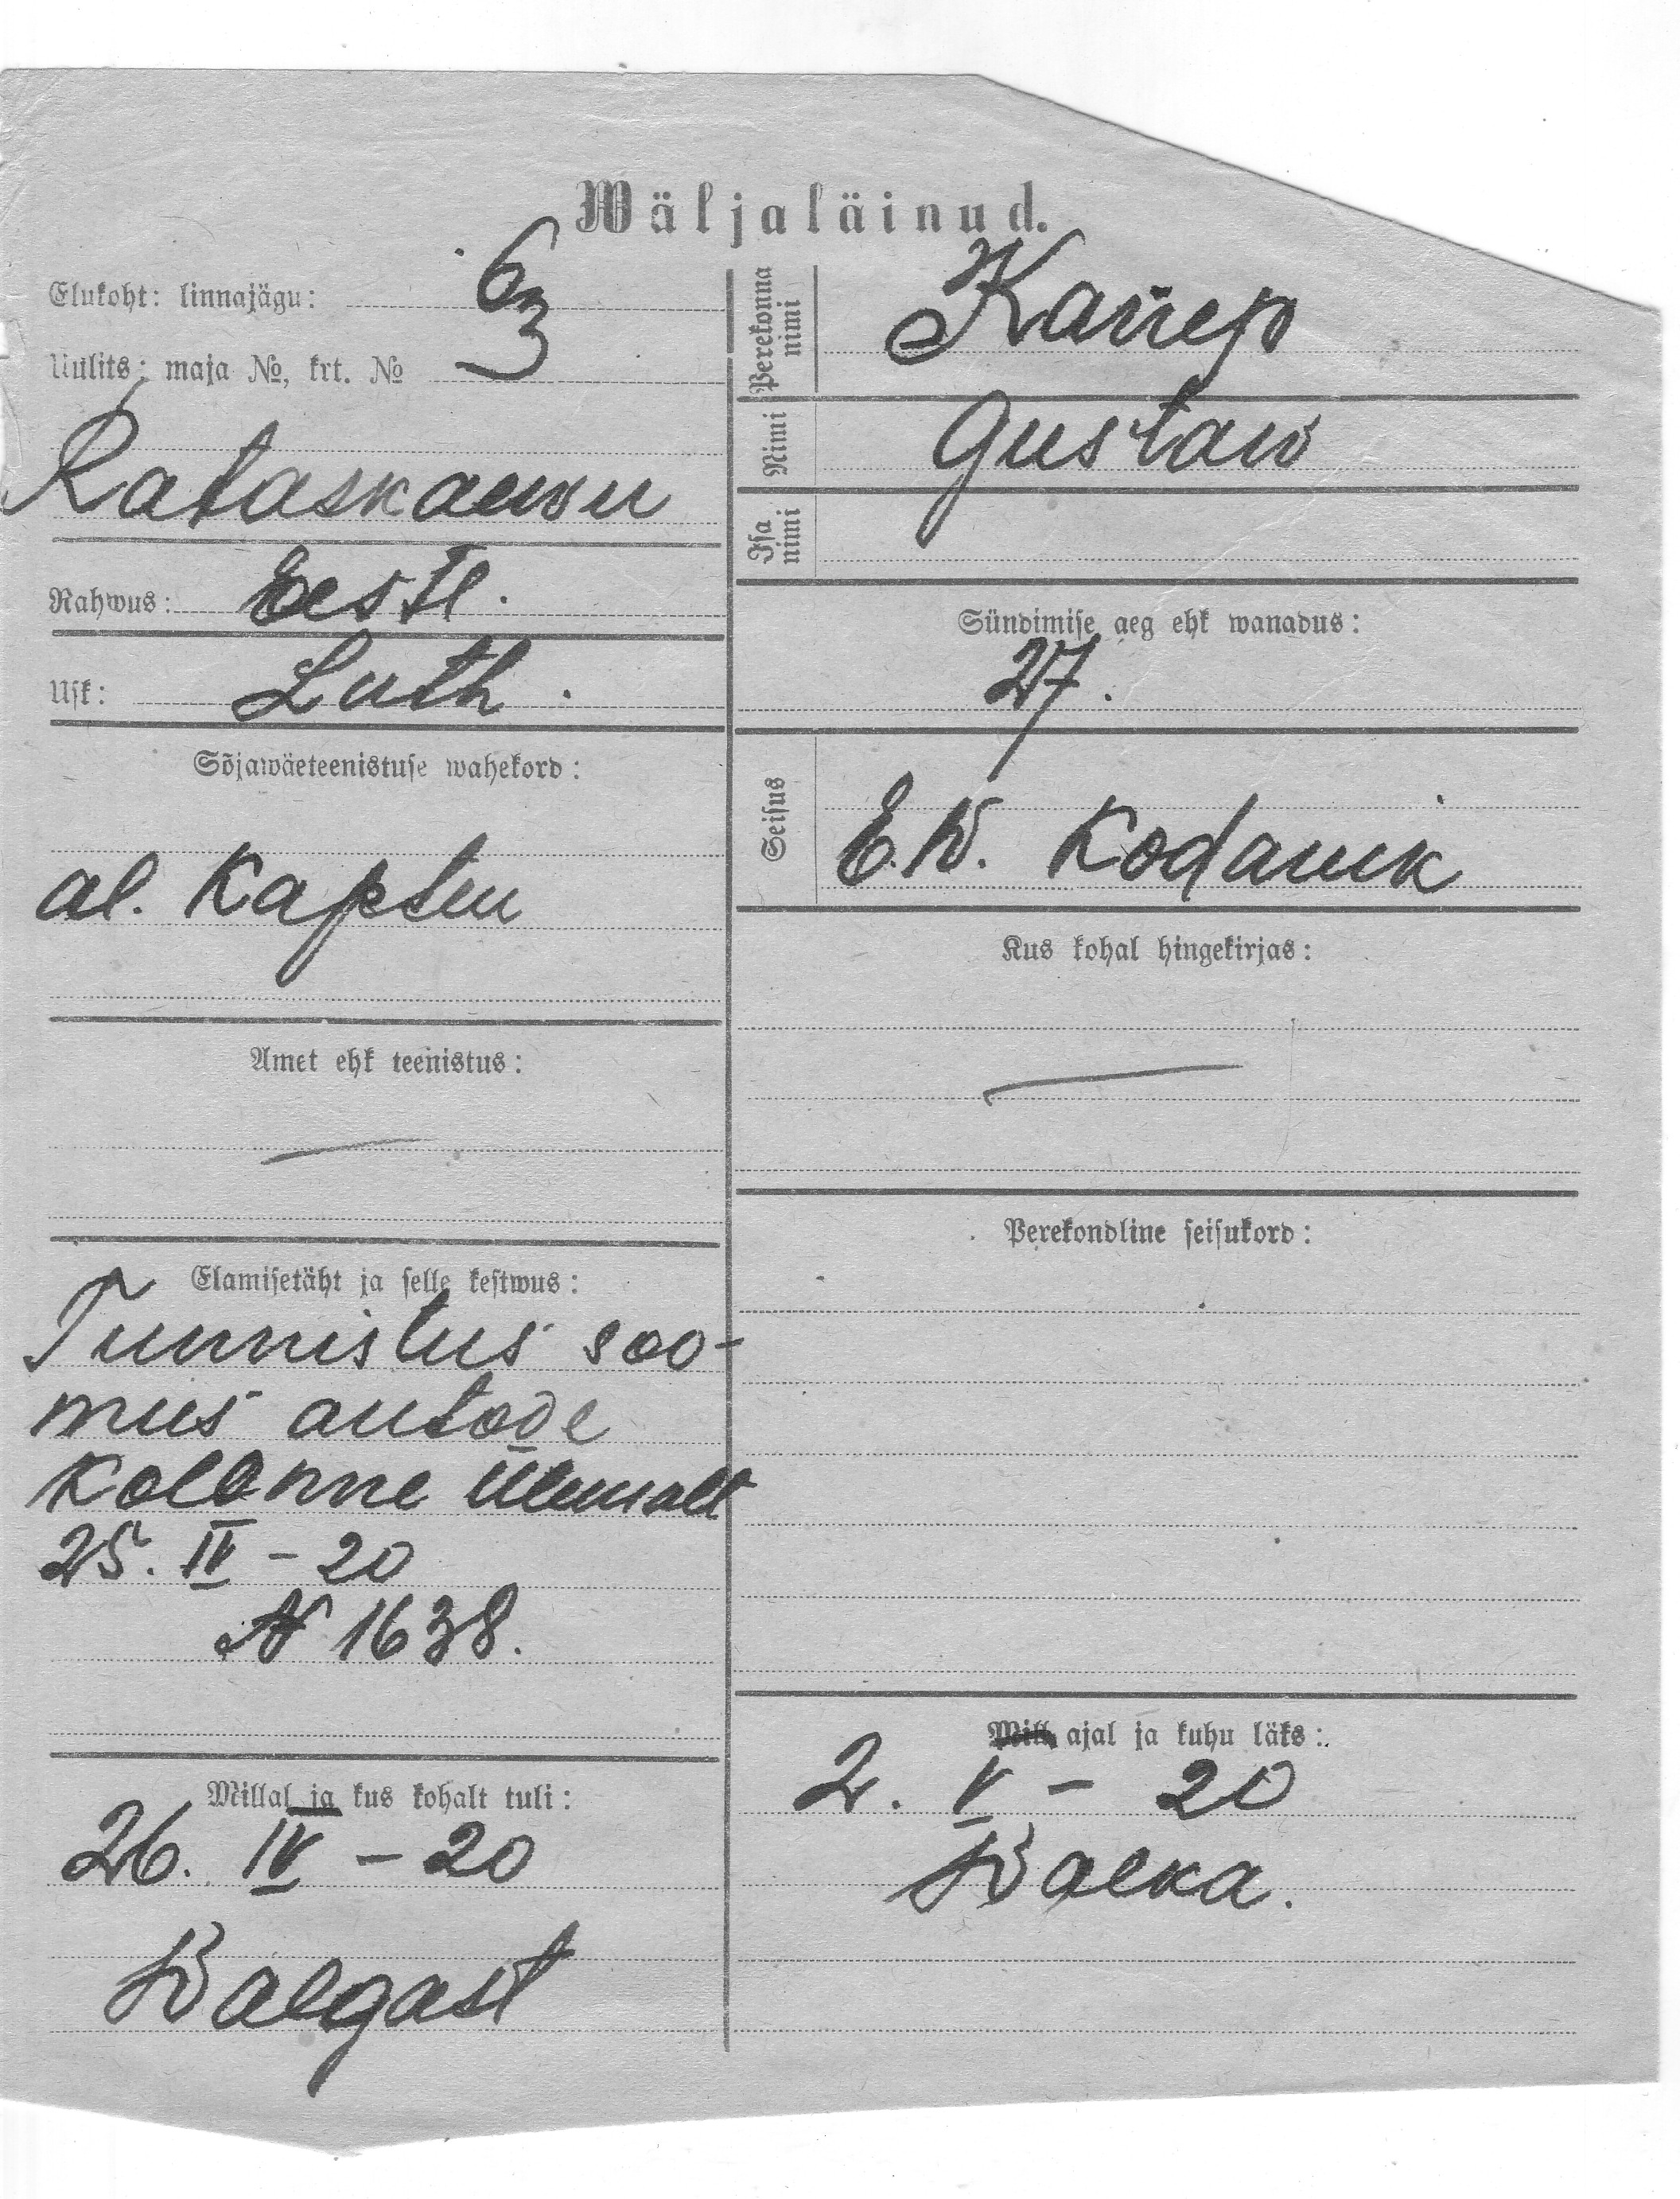 Wäljaläinud.
Elukoht: linnajägu: 6
Uulits: maja №, krt. № 3
Rataskaewu
Rahwus: Eestl.
Usk: Luth.
Sõjawäeteenistuse wahekord:
al. Kapten
Amet ehk teenistus:
Elamisetäht ja selle kestwus:
Tunnistus soo-
mus autode
Kolonne Ülemalt
25. IV - 20
№ 1638.
Millal ja kus kohalt tuli:
26. IV - 20
Walgast
Perekonna nimi Kanep
Nimi Gustaw
Isa nimi
Sündimise aeg ehk wanadus:
27.
Seisus
E.W. Kodanik
Kus kohal hingekirjas:
Perekondline seisukord:
Mill ajal ja kuhu läks:
2. V - 20
Walka.